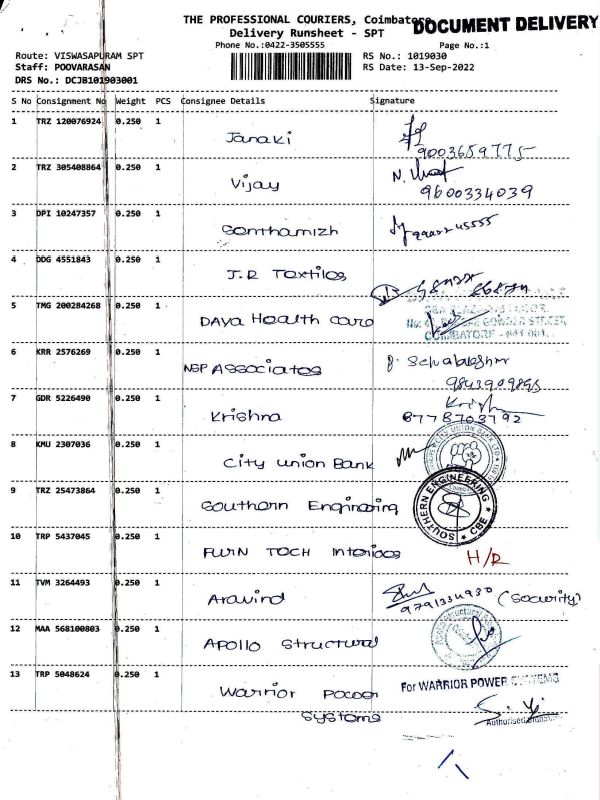 THE PROFESSIONAL COURIERS, Coimbatore
DOCUMENT DELIVERY
Delivery Runsheet - SPT
Phone No.:0422-3505555
Page No.:1
Route: VISWASAPURAM SPT
RS No.: 1019030
Staff: POOVARASAN
RS Date: 13-Sep-2022
DRS No.: DCJB101903001
S No Consignment No Weight PCS Consignee Details Signature
1 TRZ 120076924 0.250 1 Janaki
9003659775
2 TRZ 305408864 0.250 1 Vijay N.
9600334039
3 DPI 10247357 0.250 1 Senthamizh
4 DDG 4551843 0.250 1 J.R Textiles
5 TMG 200284268 0.250 1 DAya Health care
COIMBATORE - 641 001.
6 KRR 2576269 0.250 1 NSP Associates
7 GDR 5226490 0.250 1 Krishna Krishna
8778703792
8 KMU 2307036 0.250 1 City union Bank
CITY UNION BANK LTD
9 TRZ 25473864 0.250 1 Southern Engineering
SOUTHERN ENGINEERING CBE
10 TRP 5437045 0.250 1 FURN TECH Interioos H/R
11 TVM 3264493 0.250 1 Aravind
9791334930 (Security)
12 MAA 568100803 0.250 1 APOLLO Structural
13 TRP 5048624 0.250 1 Warrior Power
Systems
For WARRIOR POWER SYSTEMS
Authorised Signatory